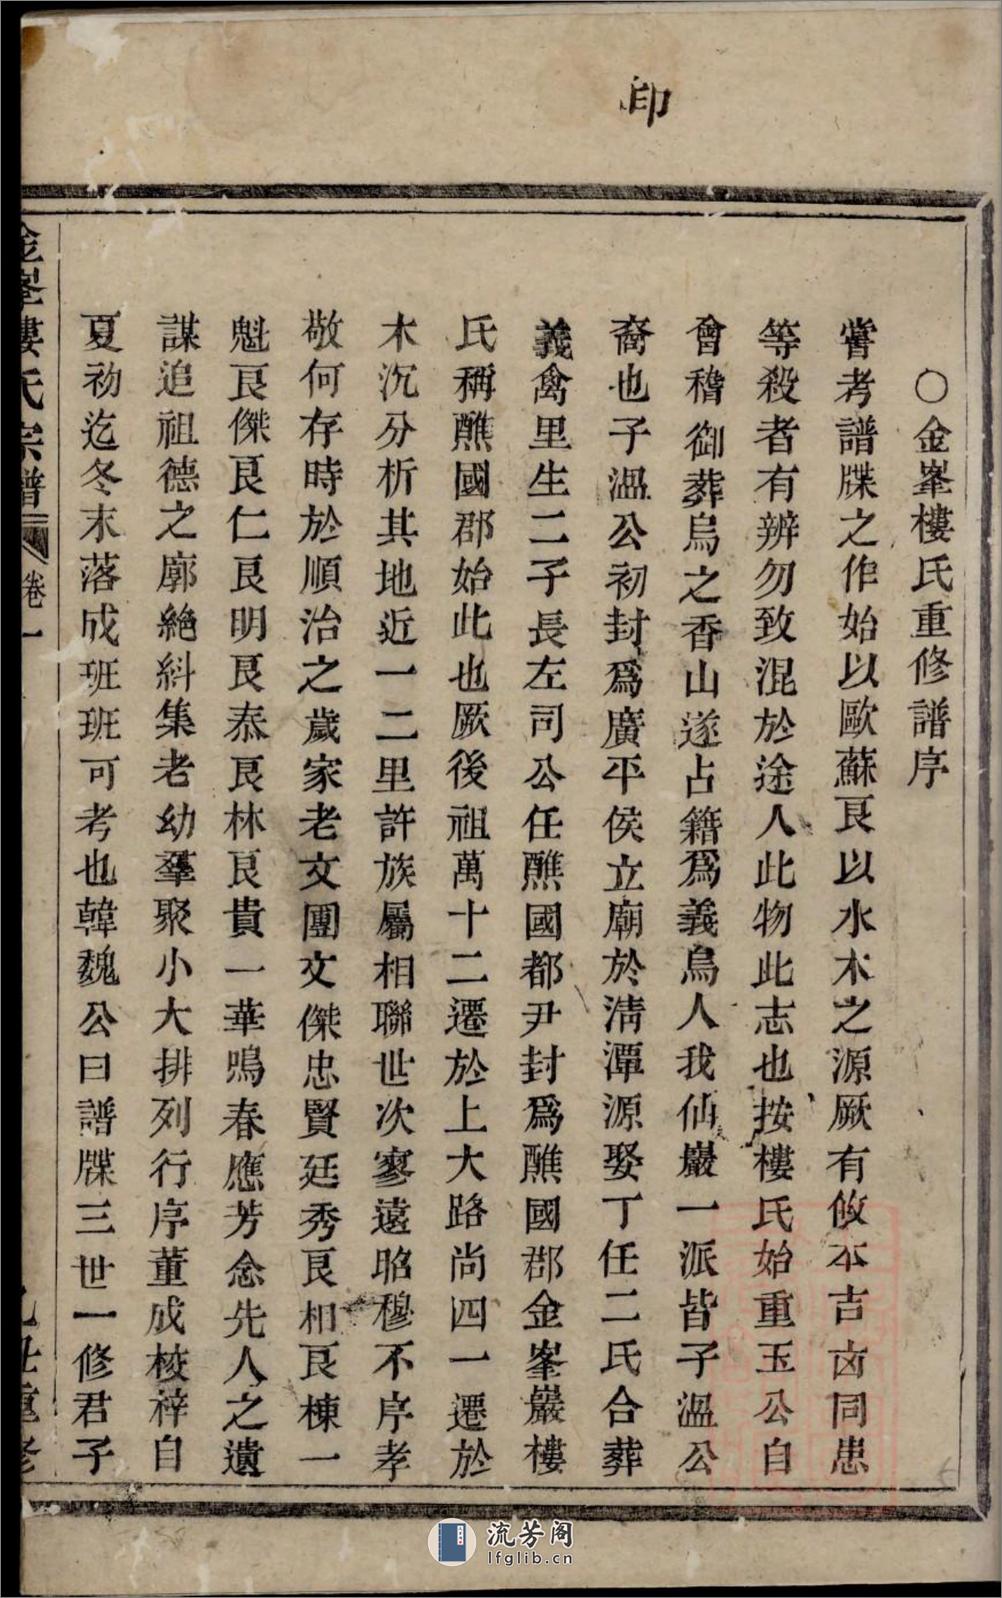 印
○金峯樓氏重修譜序
嘗考譜牒之作始以歐蘇良以水木之源厥有攸本吉卤同患
等殺者有辨勿致混於途人此物此志也按樓氏始重玉公自
會稽御葬烏之香山遂占籍爲義烏人我仙巖一派皆子温公
裔也子温公初封爲廣平侯立廟於清潭源娶丁任二氏合葬
義禽里生二子長左司公任醮國都尹封爲醮國郡金峯巖樓
氏稱醮國郡始此也厥後祖萬十二遷於上大路尚四一遷於
木沉分析其地近一二里許族屬相聯世次寥遠昭穆不序孝
敬何存時於順治之歲家老文團文傑忠賢廷秀良相良棟一
魁良傑良仁良明良泰良林良貴一華鳴春應芳念先人之遺
謀追祖德之廓絶糾集老幼羣聚小大排列行序董成梭梓自
夏初迄冬末落成班班可考也韓魏公曰譜牒三世一修君子
金峯樓氏宗譜 卷一 乙丑重修
流芳阁
lfglib.cn